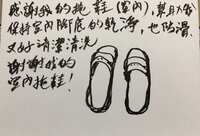 感謝我的拖鞋(室內),幫自我
保持室內腳底的乾淨,也防滑,
又好清潔清洗
謝謝我的
室內拖鞋!